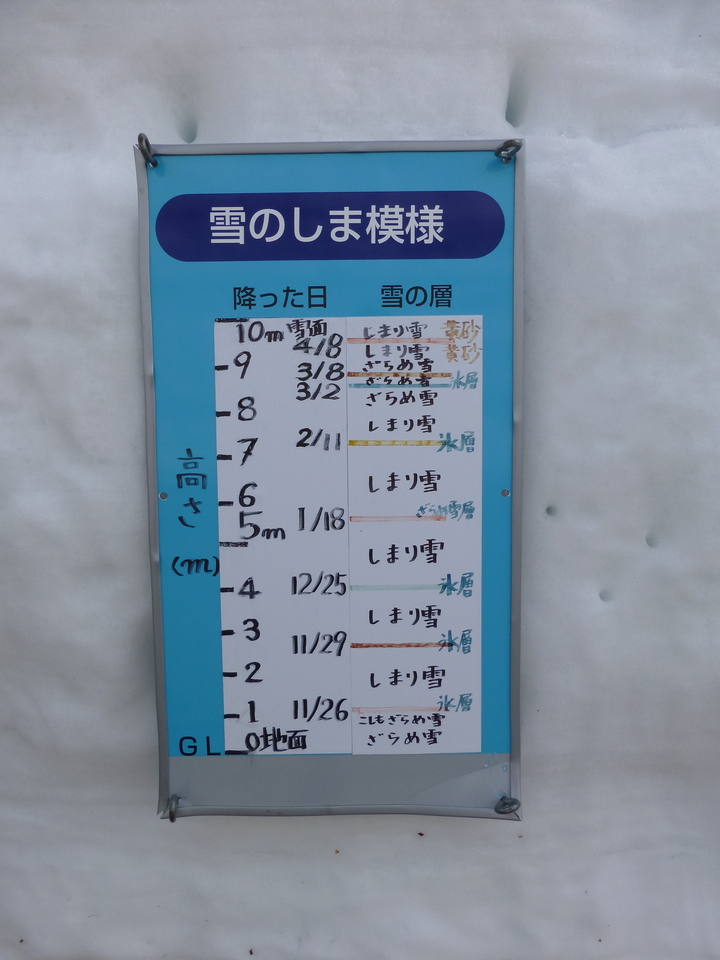 雪のしま模様
降った日 雪の層
10m 雪面 しまり雪 黄砂
4/8 しまり雪 黄砂
9 3/8 ざらめ雪
ざらめ雪 氷層
3/2 ざらめ雪
8 しまり雪
7 2/11 氷層
しまり雪
6
5m 1/18 ざらめ雪層
しまり雪
4 12/25 氷層
しまり雪
3 11/29 氷層
2 しまり雪
1 11/26 氷層
こしもざらめ雪
GL 0地面 ざらめ雪
高さ
(m)